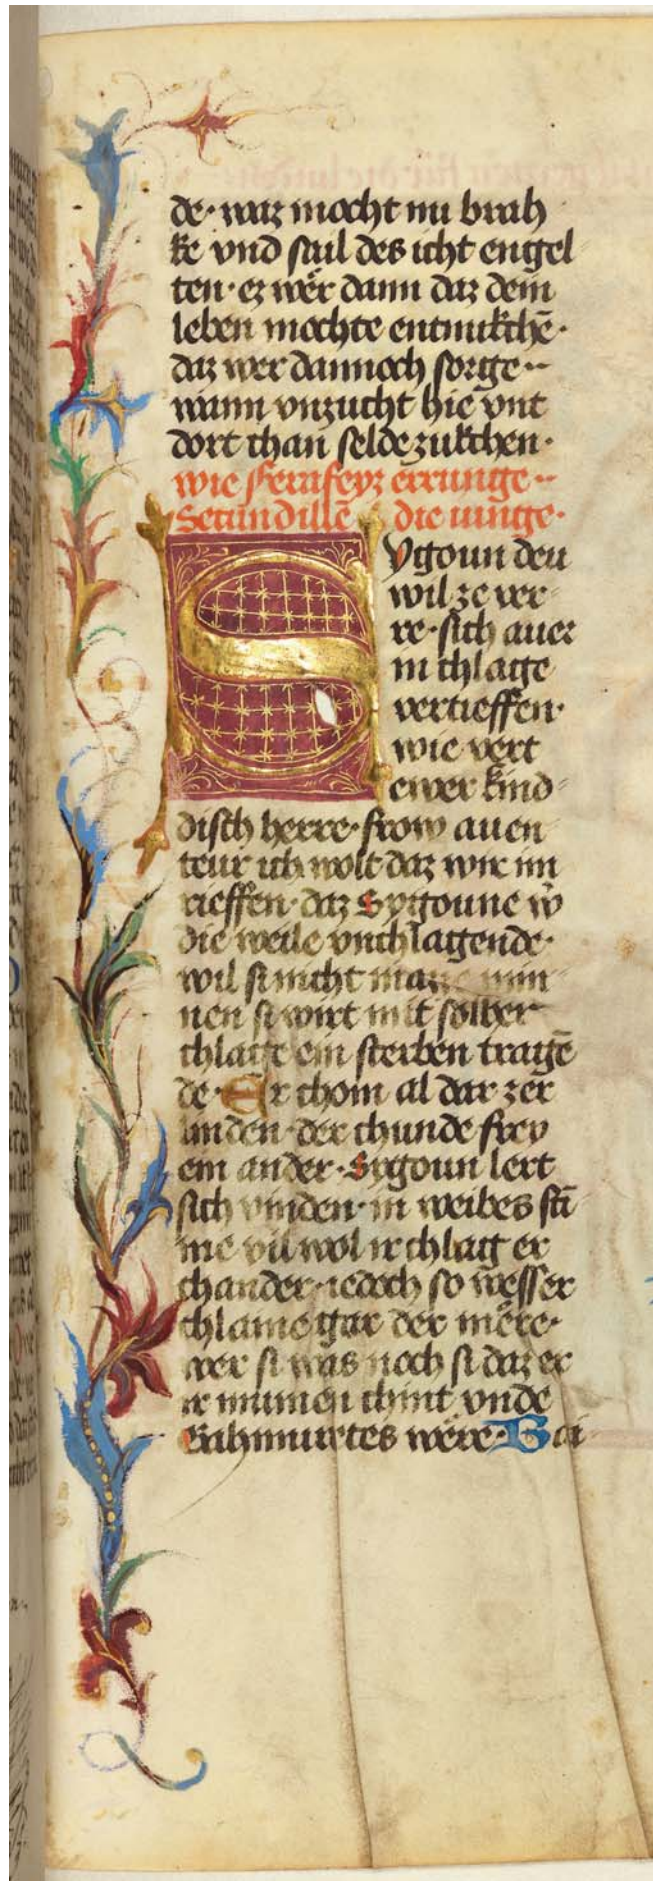 de· waz mocht nu brah
ke vnd sail des icht engel
ten· ez wër dann daz dein
leben mochte entnukchē·
daz wer dannoch sorge··
wann vnzucht hie vnt
dort chan selde zukchen·
wie ferafeyz errunge··
Secundillē die iunge·
Sygoun den
wil ze ver
re· sich auer
in chlage
vertieffen·
wie vert
ewer kind
disch herre· frow auen
teur ich wolt daz wir im
rieffen· daz Sygoune
die weile vnchlagende·
wil si nicht min
nen si wirt mit solher
chlage ein sterben tragē
de· Er chom al dar zer
linden· der chunde frey
ein ander· Sygoun lert
sich vinden· in weibes sti
me vil wol ir chlag er
chander· iedoch so wesser
chlaine gar der mëre·
wer si was noch si daz er
ir mumen chint vnde
Gahmuretes wëre· Bai